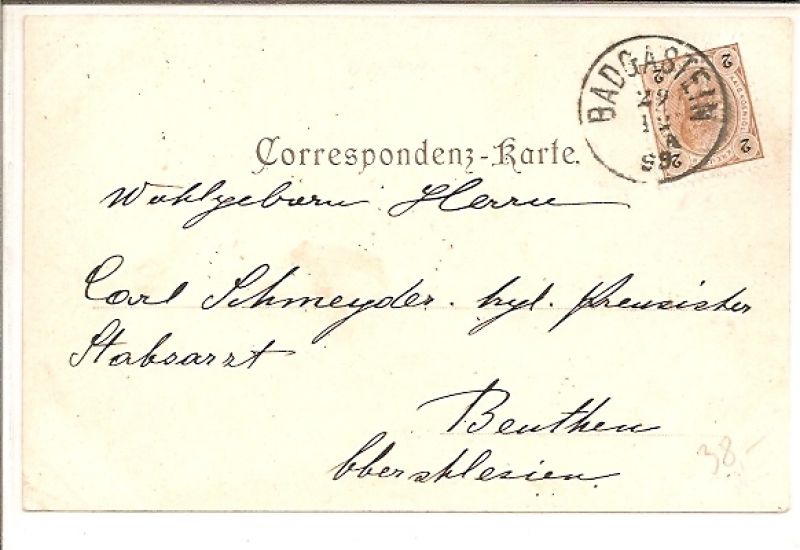 BADGASTEIN
29
12
99
2
2
2
2
Correspondenz-Karte.
Wohlgeborn Herrn
Carl Schmeyder. kgl. Preusischer
Stabsarzt
Beuthen
Oberschlesien.
38,-